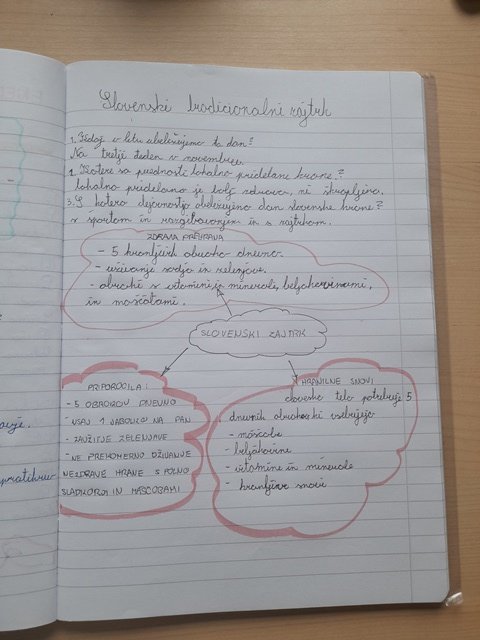 Slovenski tradicionalni zajtrk
1. Kdaj v letu obeležujemo ta dan?
Na tretji teden v novembru.
2. Katere so prednosti lokalno pridelane hrane?
lokalno pridelana je bolj zdrava, ni škropljena.
3. S katero dejavnostjo obeležujemo dan slovenske hrane?
s športom in razgibavanjem in s zajtrkom.
ZDRAVA PREHRANA
- 5 hranljivih obrokov dnevno.
- uživanje sadja in zelenjave.
- obroki z vitamini in minerali, beljakovinami,
in maščobami.
SLOVENSKI ZAJTRK
PRIPOROČILA:
- 5 OBROKOV DNEVNO
- VSAJ 1 JABOLKO NA DAN
- ZAUŽITJE ZELENJAVE
- NE PREKOMERNO UŽIVANJE
NEZDRAVE HRANE S POLNO
SLADKORJI IN MAŠČOBAMI
HRANILNE SNOVI
človeško telo potrebuje 5
dnevnih obrokov ki vsebujejo
- maščobe
- beljakovine
- vitamine in minerale
- hranljive snovi